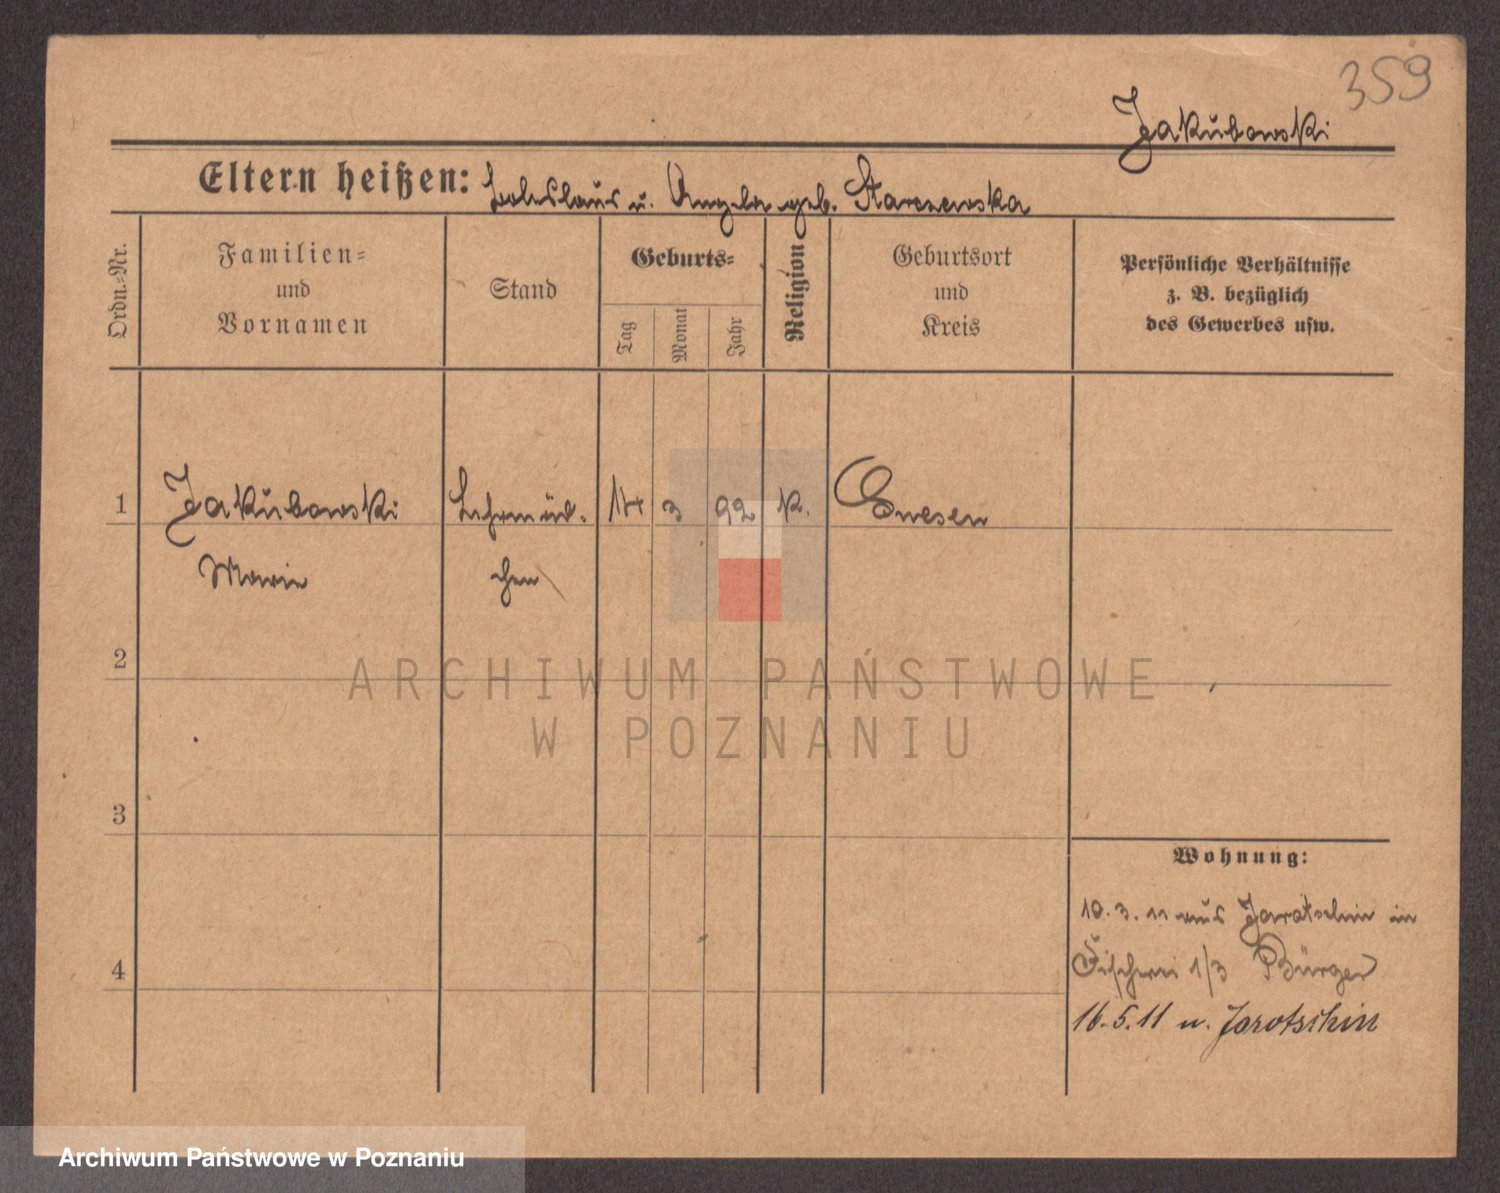 359
Jakubowski
Eltern heißen: Boleslaus u. Angela geb. Starczewska
Ordn.=Nr.
Familien=
und
Vornamen
Stand
Geburts=
Tag
Monat
Jahr
Religion
Geburtsort
und
Kreis
Persönliche Verhältnisse
z. B. bezüglich
des Gewerbes usw.
1 Jakubowski Lehrmäd- 14 3 92 K. Gnesen
Marie chen
2
ARCHIWUM PAŃSTWOWE
W POZNANIU
3
Wohnung:
10. 3. 11 aus Jarotschin in
4
Fischerei 1/3 Bürger
16. 5. 11 n. Jarotschin
Archiwum Państwowe w Poznaniu